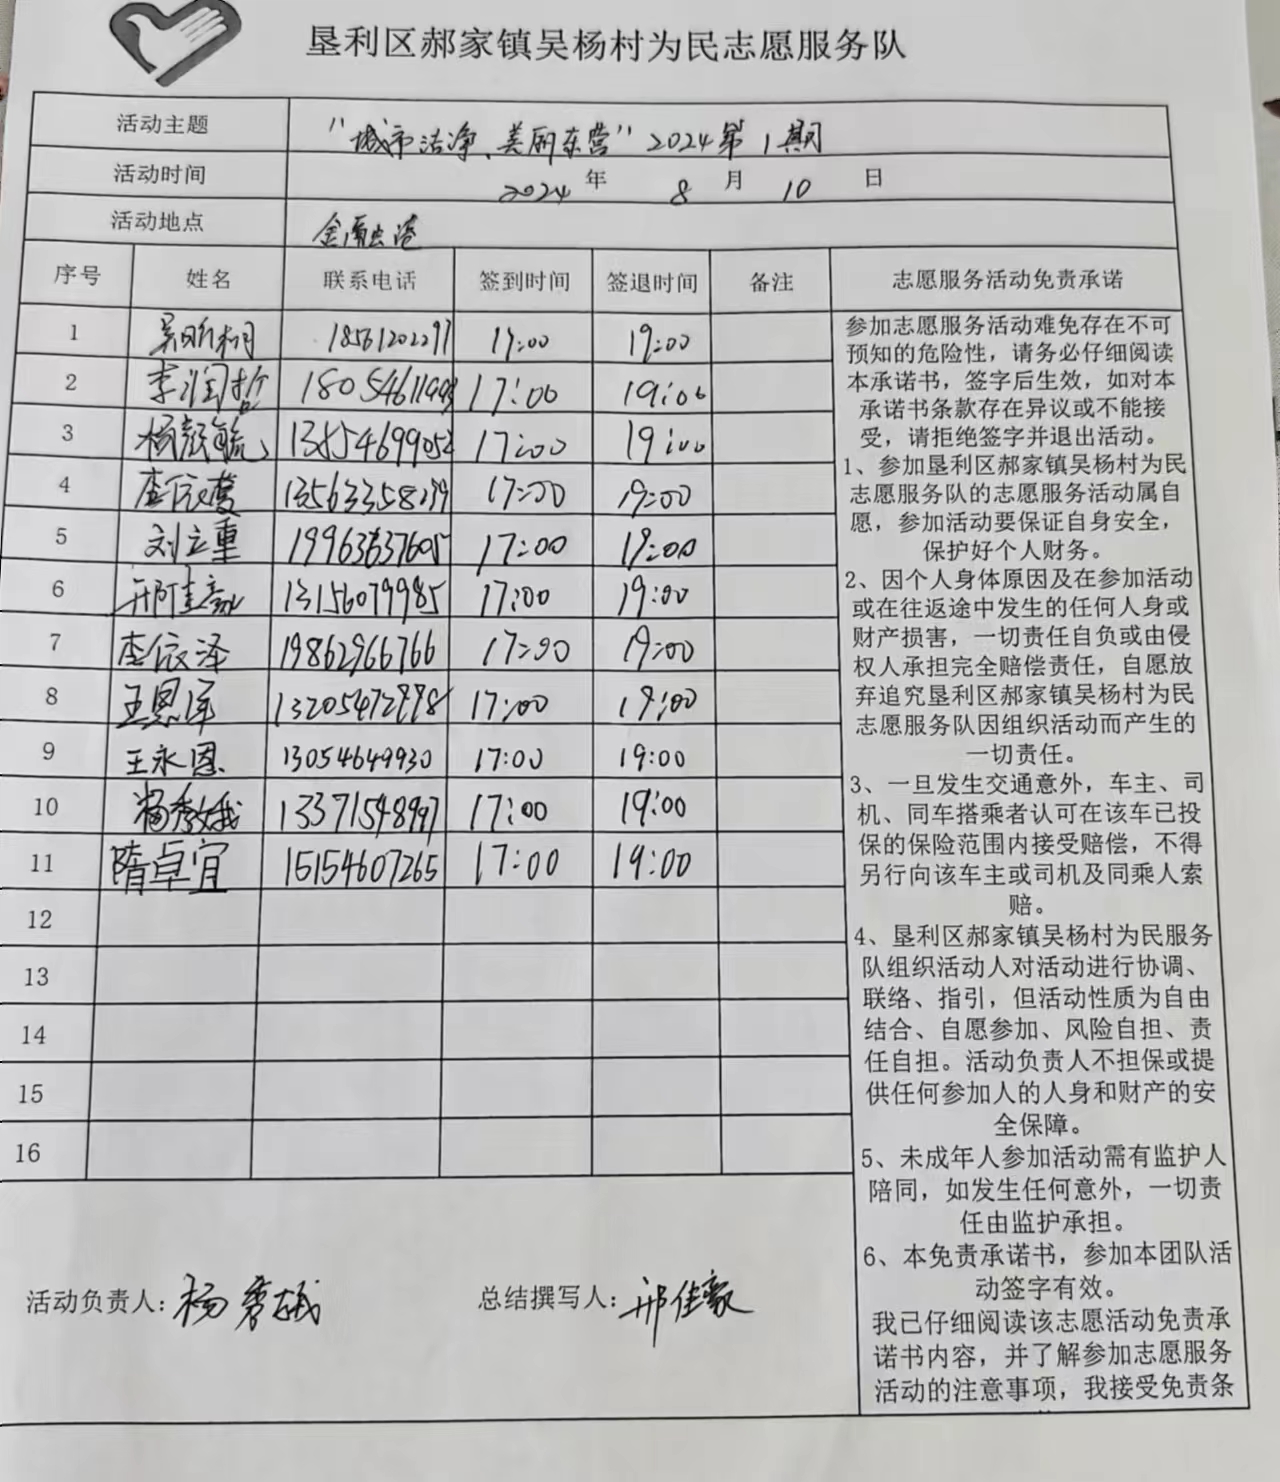 垦利区郝家镇吴杨村为民志愿服务队
活动主题 "城市洁净、美丽东营"2024第1期
活动时间 2024年 8月 10日
活动地点 金融港
序号 姓名 联系电话 签到时间 签退时间 备注 志愿服务活动免责承诺
1 17:00 19:00
2 李润哲 17:00 19:00
3 17:00 19:00
4 李依蔓 17:00 19:00
5 刘立重 17:00 19:00
6 邢佳豪 13156079985 17:00 19:00
7 李依泽 19862966766 17:00 19:00
8 王恩泽 17:00 19:00
9 王永恩 13054649930 17:00 19:00
10 杨秀娥 17:00 19:00
11 隋卓宜 15154607265 17:00 19:00
12
13
14
15
16
参加志愿服务活动难免存在不可
预知的危险性，请务必仔细阅读
本承诺书，签字后生效，如对本
承诺书条款存在异议或不能接
受，请拒绝签字并退出活动。
1、参加垦利区郝家镇吴杨村为民
志愿服务队的志愿服务活动属自
愿，参加活动要保证自身安全，
保护好个人财务。
2、因个人身体原因及在参加活动
或在往返途中发生的任何人身或
财产损害，一切责任自负或由侵
权人承担完全赔偿责任，自愿放
弃追究垦利区郝家镇吴杨村为民
志愿服务队因组织活动而产生的
一切责任。
3、一旦发生交通意外，车主、司
机、同车搭乘者认可在该车已投
保的保险范围内接受赔偿，不得
另行向该车主或司机及同乘人索
赔。
4、垦利区郝家镇吴杨村为民服务
队组织活动人对活动进行协调、
联络、指引，但活动性质为自由
结合、自愿参加、风险自担、责
任自担。活动负责人不担保或提
供任何参加人的人身和财产的安
全保障。
5、未成年人参加活动需有监护人
陪同，如发生任何意外，一切责
任由监护承担。
6、本免责承诺书，参加本团队活
动签字有效。
我已仔细阅读该志愿活动免责承
诺书内容，并了解参加志愿服务
活动的注意事项，我接受免责条
活动负责人：杨秀娥 总结撰写人：邢佳豪